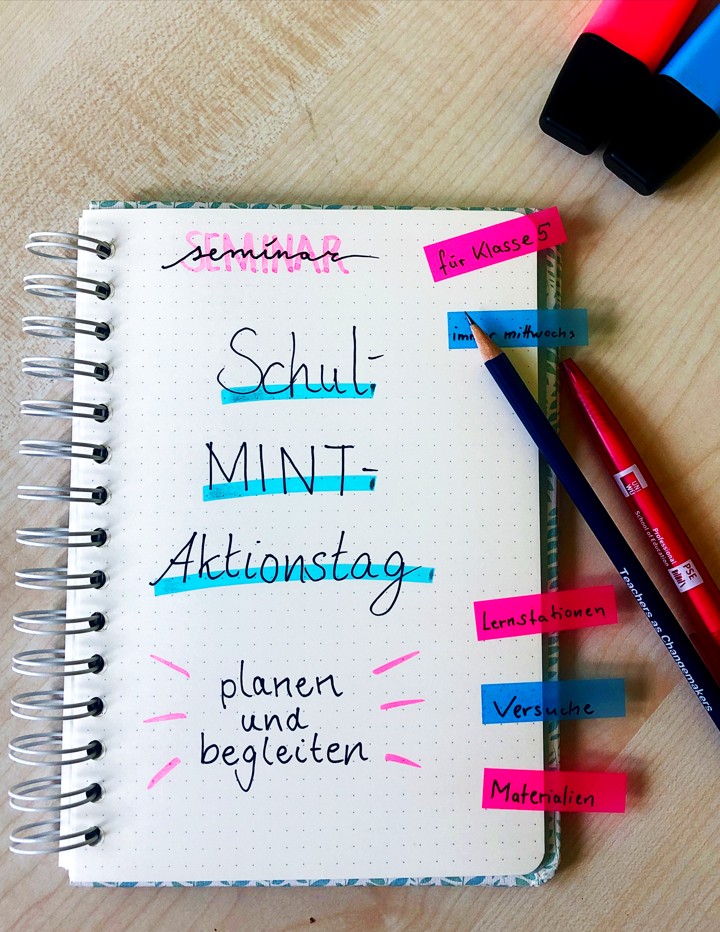 SEMINAR
seminar
für Klasse 5
immer mittwochs
Schul-
MINT-
Aktionstag
planen
und
begleiten
Lernstationen
Versuche
Materialien
UNI
WÜ
Professional
School of Education
PSE
Teachers as Changemakers